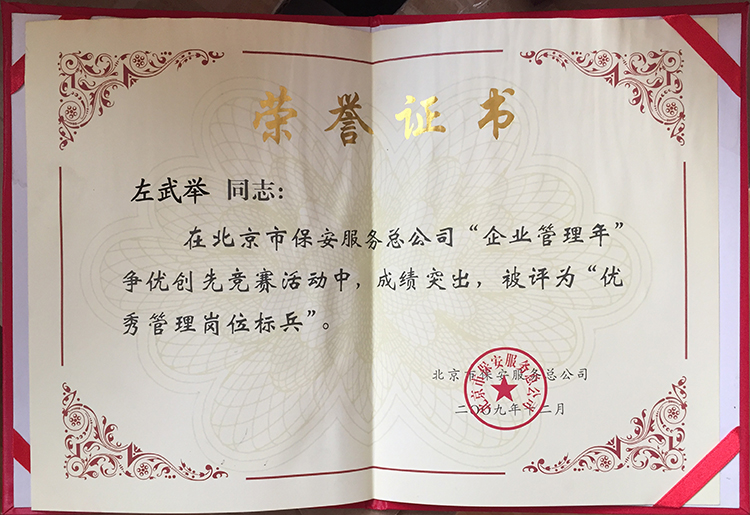 荣誉证书
左武举 同志：
在北京市保安服务总公司“企业管理年”
争优创先竞赛活动中，成绩突出，被评为“优
秀管理岗位标兵”。
北京市保安服务总公司
二〇〇九年十二月
北京市保安服务总公司